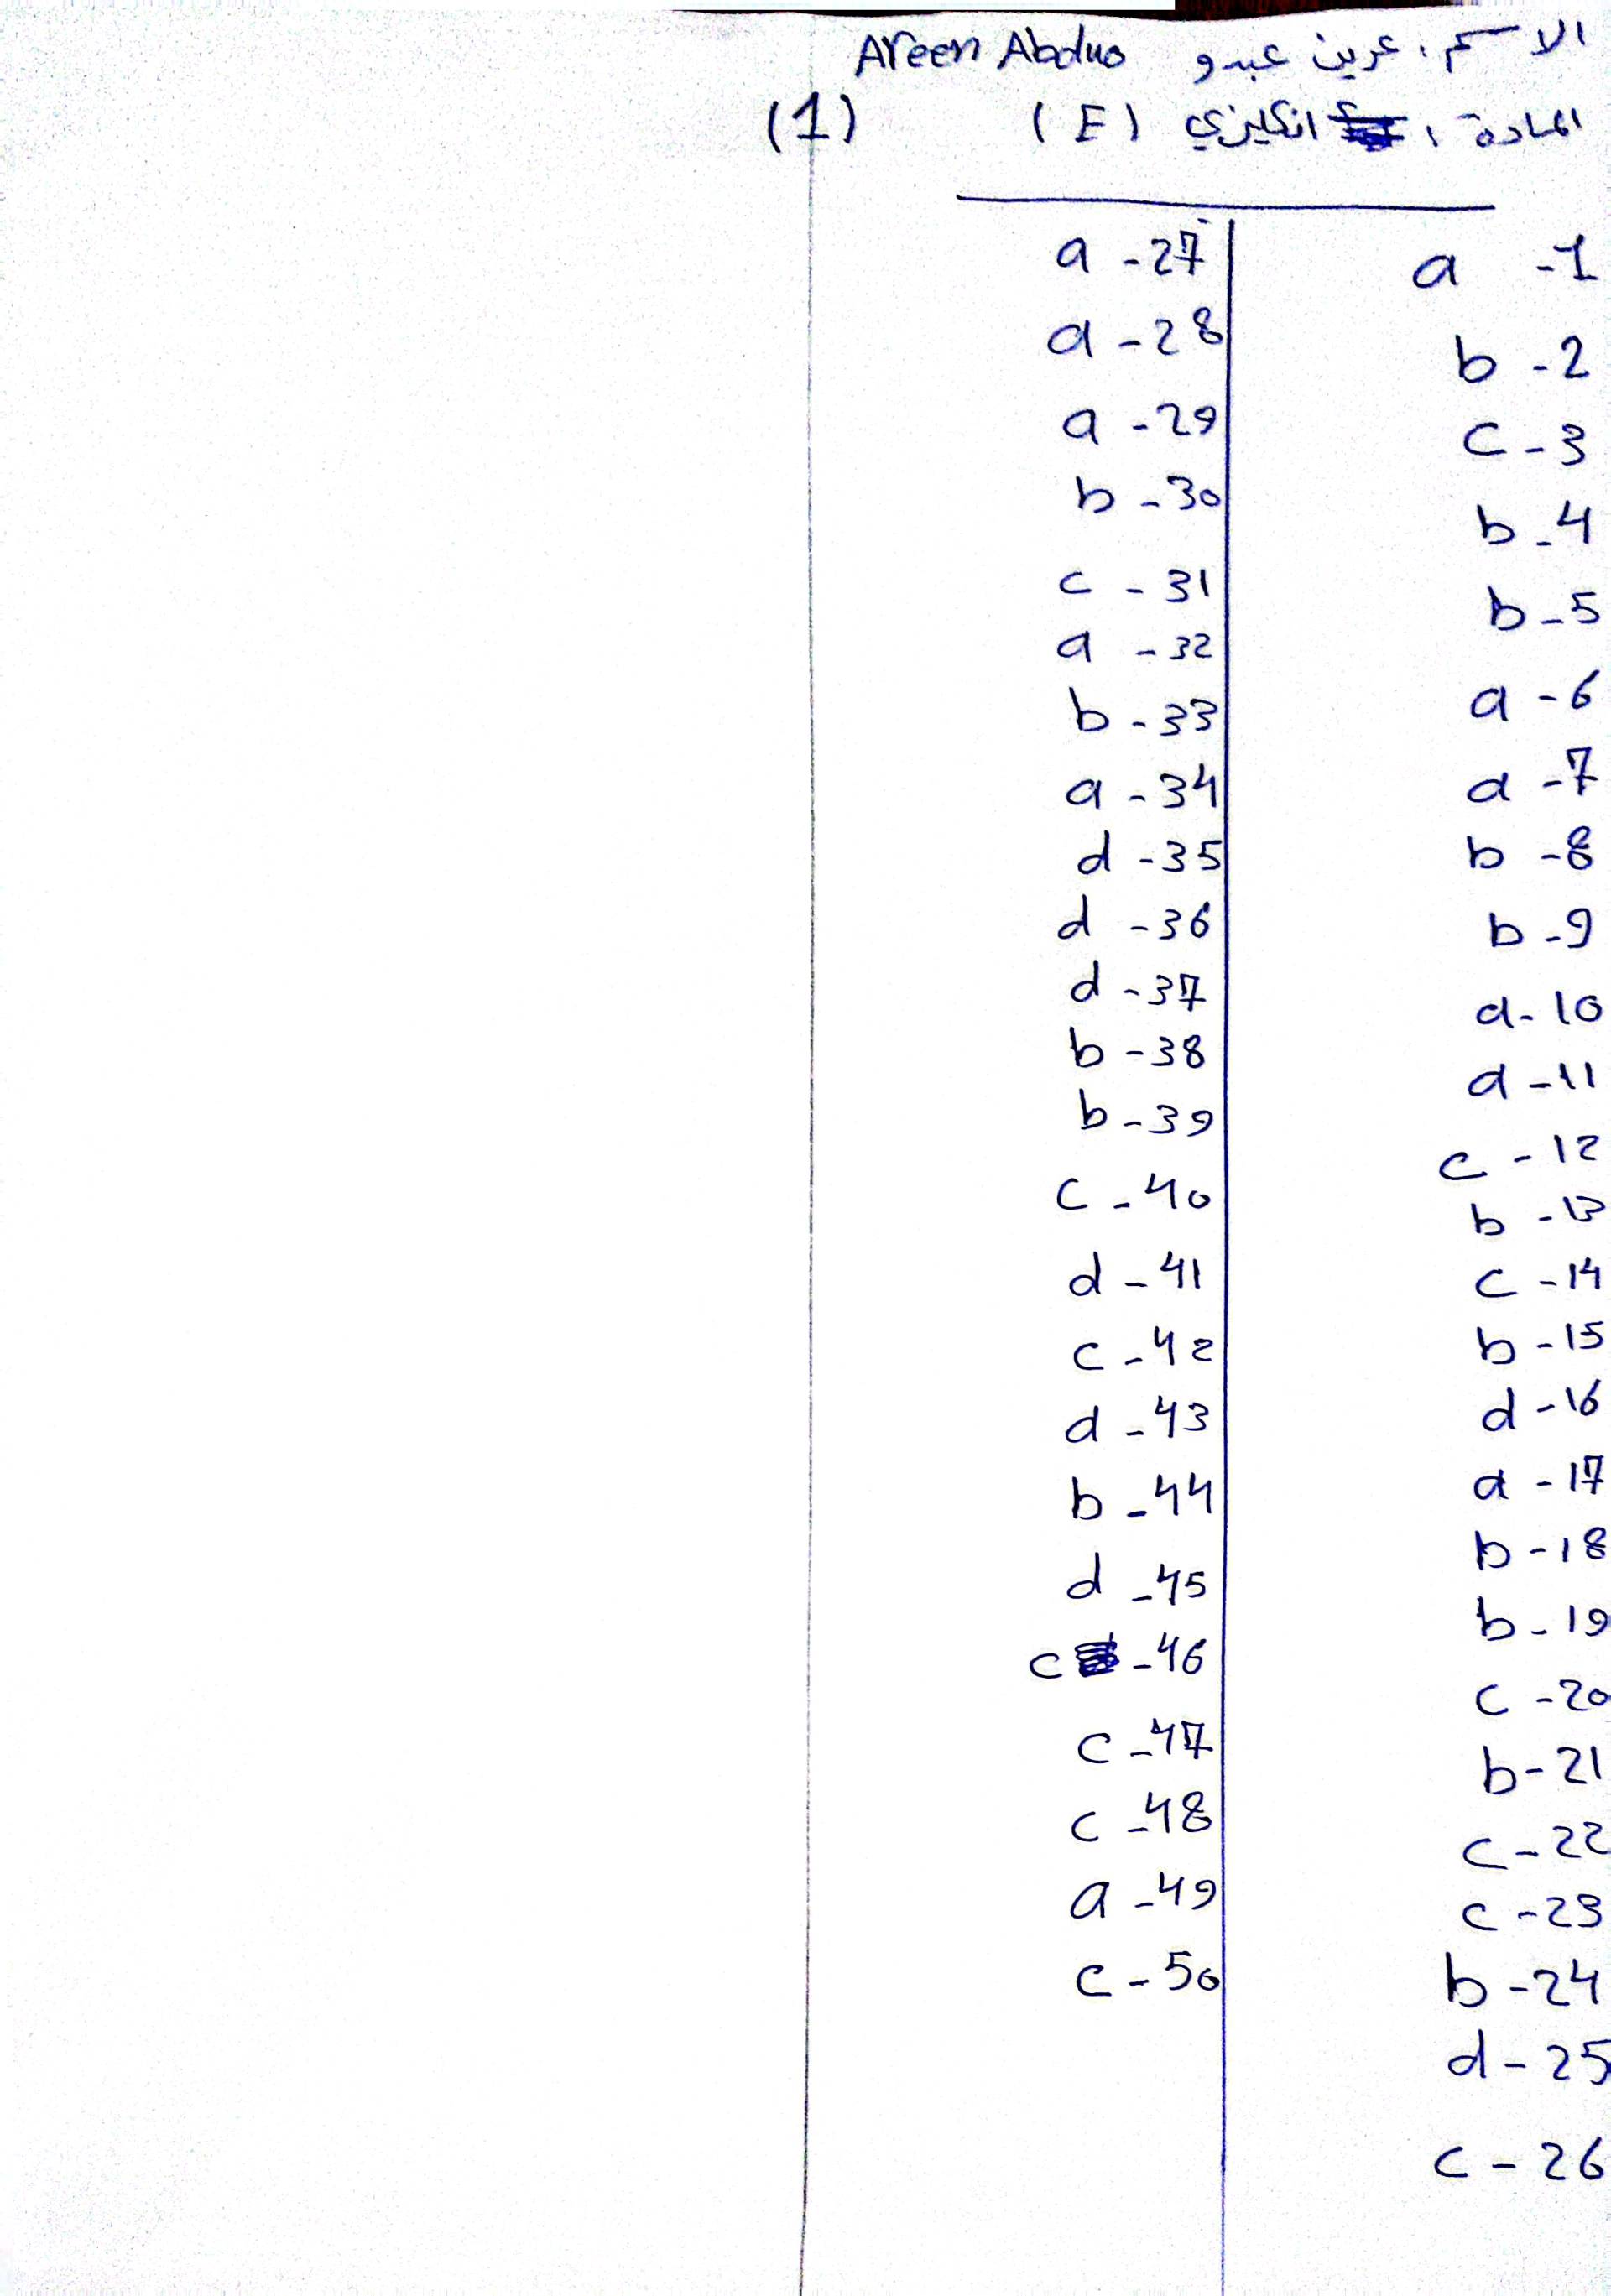 الاسم: عرين عبدو Areen Abduo
المادة: انكليزي (E) (1)
a - 1
b - 2
c - 3
b - 4
b - 5
a - 6
a - 7
b - 8
b - 9
a - 10
a - 11
c - 12
b - 13
c - 14
b - 15
d - 16
a - 17
b - 18
b - 19
c - 20
b - 21
c - 22
c - 23
b - 24
d - 25
c - 26
a - 27
a - 28
a - 29
b - 30
c - 31
a - 32
b - 33
a - 34
d - 35
d - 36
d - 37
b - 38
b - 39
c - 40
d - 41
c - 42
d - 43
b - 44
d - 45
c - 46
c - 47
c - 48
a - 49
c - 50